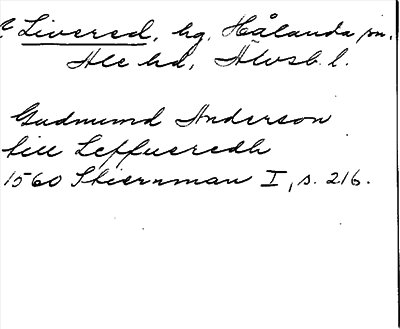 Livered, hg. Hålanda sn.
Ale hd, Älvsb. l.
Gudmund Anderson
till Leffueredh
1560 Stiernman I, s. 216.